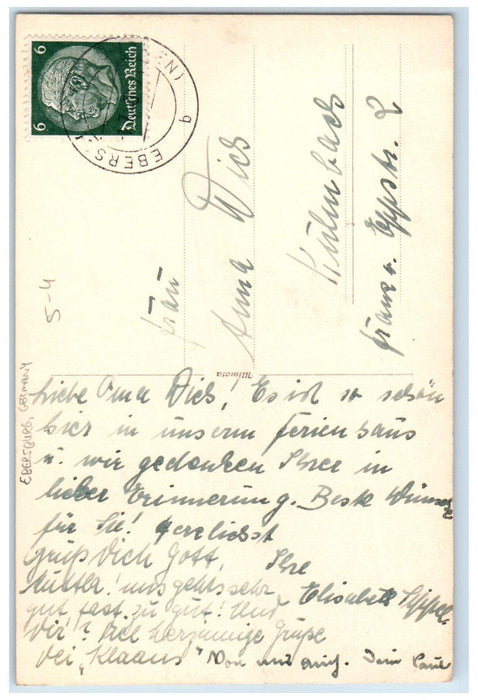 6
6
Deutsches Reich
EBERS
EN)
b
Frau
Anna Dies
Kulmbach
Franz v. Eppstr. 2
Mimosa
5-4
EBERSBURG, GERMANY
Liebe Oma Dies, Es ist so schön
hier in unserm Ferienhaus
u. wir gedenken Ihrer in
lieber Erinnerung. Beste Wünsche
für Sie! Herzlichst
Ihre
Elisabeth
Grüß Dich Gott,
Mutter! uns gehts sehr
gut, fast zu gut! Und
Dir? Viel herzinnige Grüße
bei „Klaaus"
Von uns auch. Dein Paul